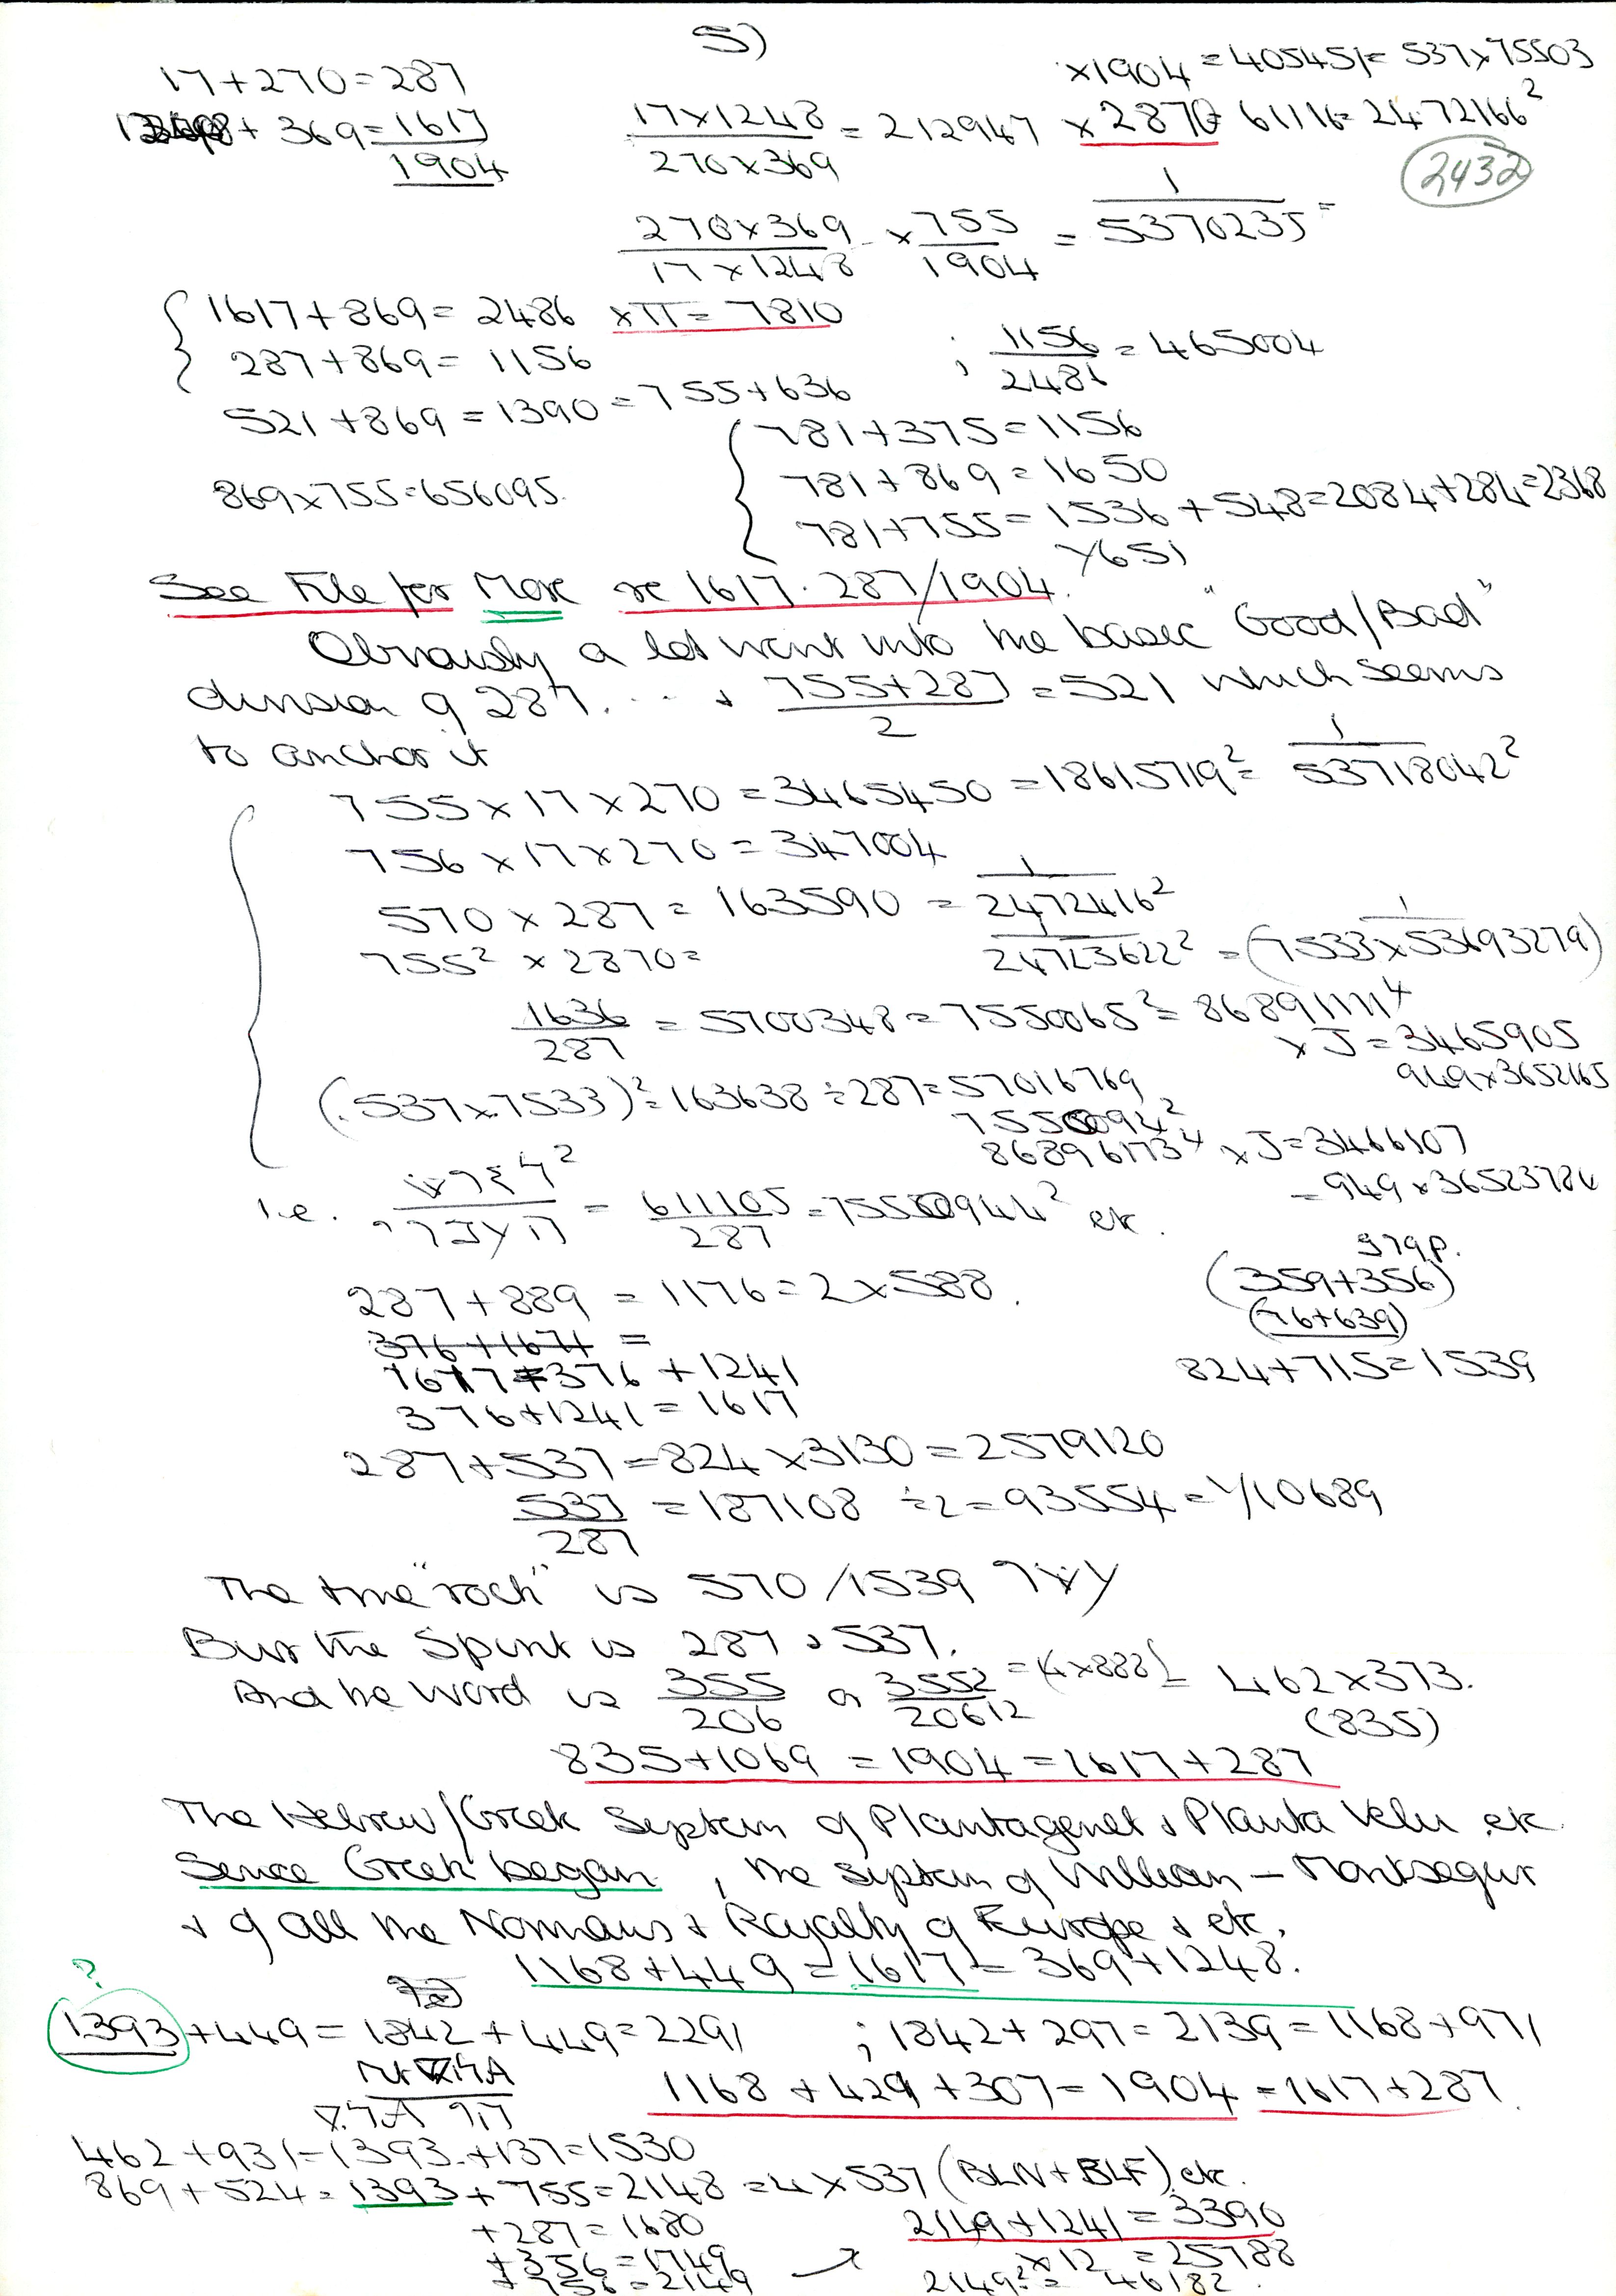 5)
17+270=287
+ 369=1617
1904
17x1248 / 270x369 = 212947
x1904 = 405451= 537x75503
x2870 61116= 2472166²
2432
270x369 / 17x1248 x 755 / 1904 = 1 / 5370235 =
1617+869= 2486 xπ= 7810
287+869= 1156
; 1156 / 2486 = 465004
521+869=1390=755+636
781+375=1156
869x755=656095.
781+869=1650
781+755=1536+548=2084+284=2368
See File for More re 1617. 287/1904.
Obviously a lot went into the basic "Good/Bad"
division of 287. ... + 755+287 / 2 = 521 which seems
to anchor it
755x17x270=3465450=18615719²= 1 / 53718042²
756x17x270=347004
570x287= 163590 = 1 / 2472416²
755² x2870= 1 / 24723622² = (7533x53693279)
1636 / 287 = 5700348=7550065²= 86891111⁴
x J=3465905
949x3652165
(.537x7533)²=163638÷287=57016769
7550094²
86896173⁴ x J=3466107
=949x36523784
i.e. = 611105 / 287 = ² etc
287+889 = 1176=2x588.
379p.
(359+356)
(76+639)
824+715=1539
376+1671 =
1617=376+1241
376+1241=1617
287+537=824x3130=2579120
537 / 287 =187108 ÷2=93554=1/10689
The time "rock" is 570/1539
But the Spirit is 287 & 537.
And the Word is 355 / 206 or 3552 / 20612 =(4x888)= 462x373.
(835)
835+1069 =1904=1617+287
The Hebrew/Greek System of Plantagenet & Planta Velu etc.
Sence Greek began, the system of William - Montsegur
& of all the Normans & Royalty of Europe & etc.
1168+449=1617=369+1248.
?
1393+449=1842+449=2291 ; 1842+297=2139=1168+971
1168+429+307=1904=1617+287.
462+931=1393.+137=1530
869+524=1393+755=2148=4x537(BLN+BLF) etc.
+287=1680
2149+1241=3390
+356=1749
x12 =25788
+756=2149
2149²= 46182.